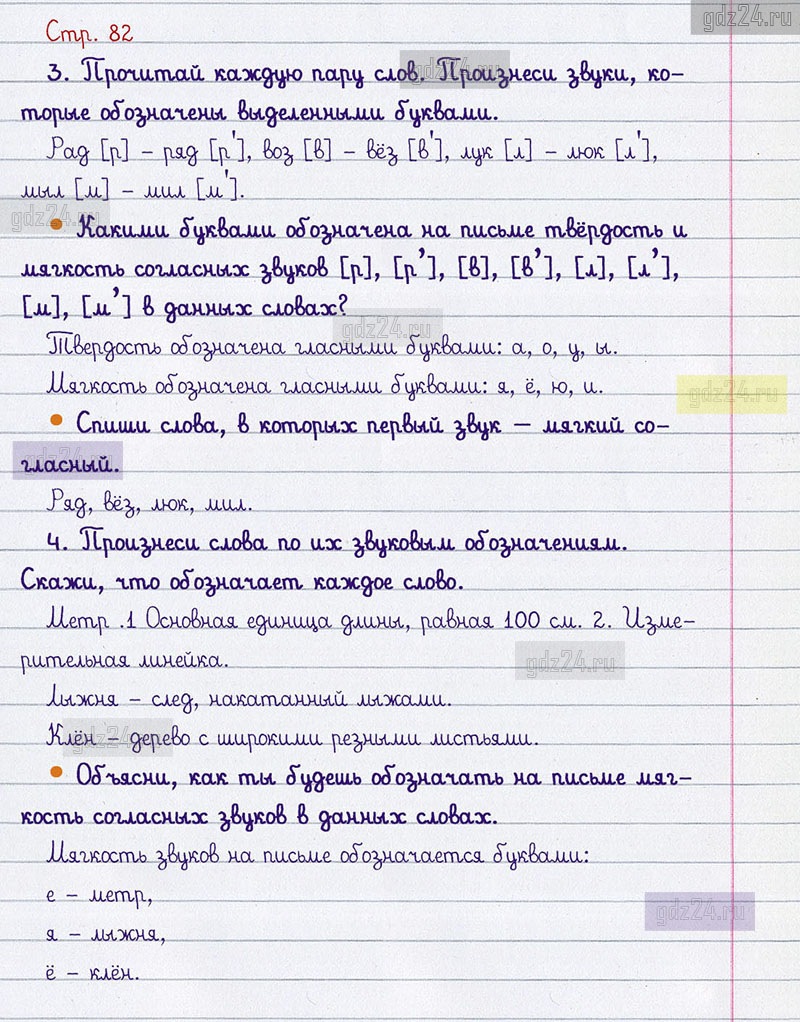 gdz24.ru
Стр. 82
3. Прочитай каждую пару слов. Произнеси звуки, ко-
gdz24.ru
торые обозначены выделенными буквами.
Рад [р] – ряд [р'], воз [в] – вёз [в'], лук [л] – люк [л'],
мыл [м] – мил [м'].
gdz24.ru
• Какими буквами обозначена на письме твёрдость и
мягкость согласных звуков [р], [р’], [в], [в’], [л], [л’],
[м], [м’] в данных словах?
gdz24.ru
Твердость обозначена гласными буквами: а, о, у, ы.
Мягкость обозначена гласными буквами: я, ё, ю, и.
gdz24.ru
• Спиши слова, в которых первый звук — мягкий со-
гласный.
gdz24.ru
Ряд, вёз, люк, мил.
4. Произнеси слова по их звуковым обозначениям.
Скажи, что обозначает каждое слово.
Метр .1 Основная единица длины, равная 100 см. 2. Изме-
рительная линейка.
gdz24.ru
Лыжня – след, накатанный лыжами.
Клён – дерево с широкими резными листьями.
gdz24.ru
• Объясни, как ты будешь обозначать на письме мяг-
кость согласных звуков в данных словах.
Мягкость звуков на письме обозначается буквами:
е – метр,
gdz24.ru
я – лыжня,
ё – клён.